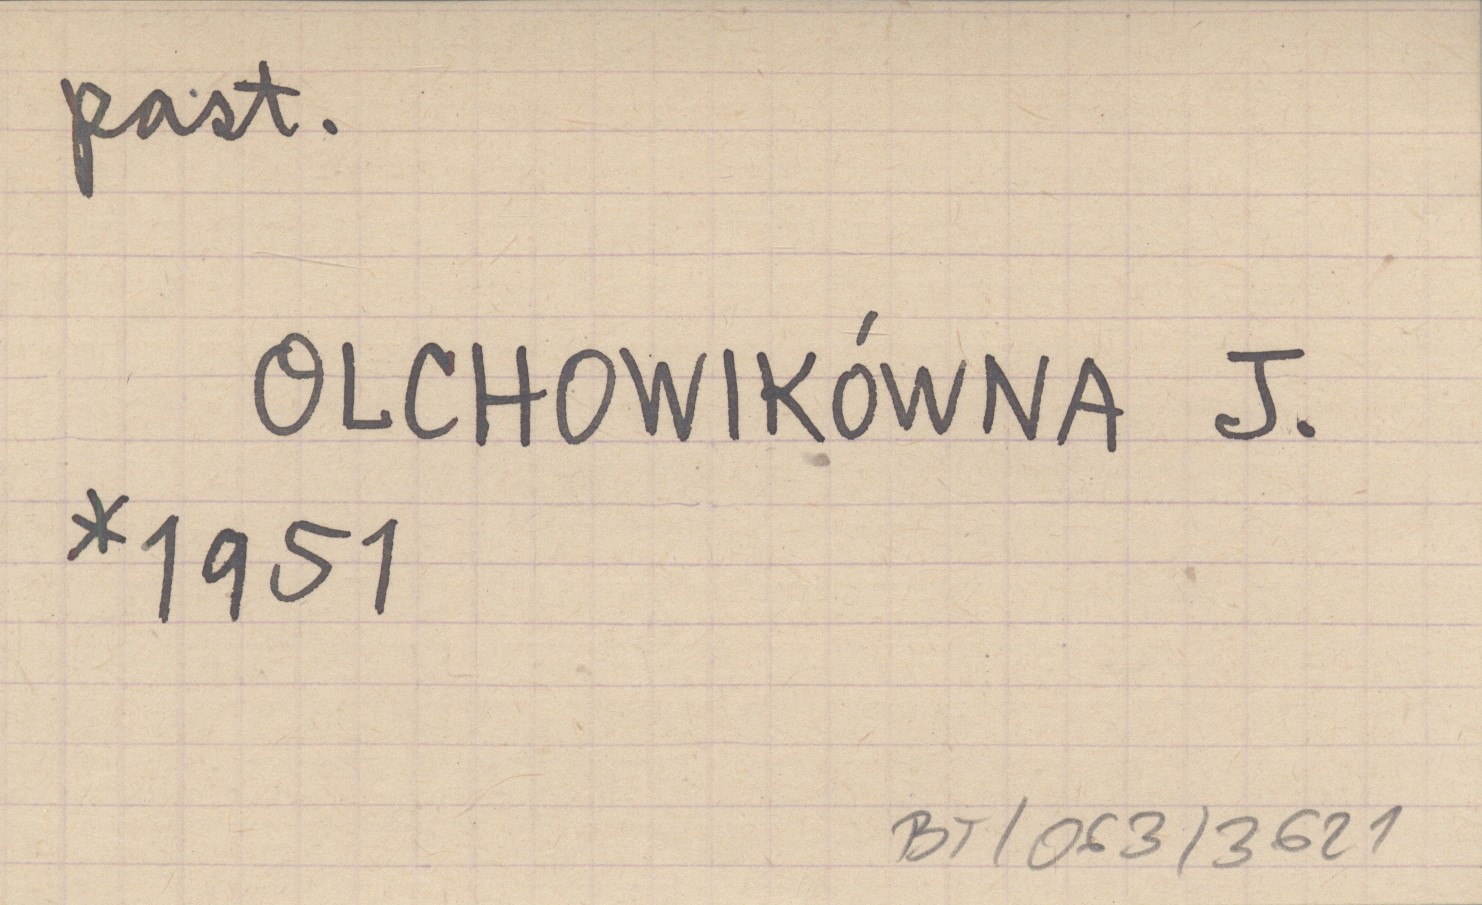 past.
OLCHOWIKÓWNA J.
*1951
BT/063/3621